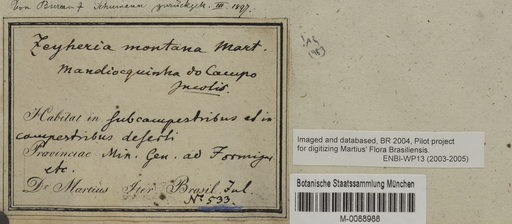 Von Bureau & Schumann zurückgek. III 1897.
Zeyheria montana Mart.
Mandiocquinha do Campo
Incolis.
Habitat in subcampestribus et in
campestribus deserti
Provinciae Min. Gen. ad Formigas
etc.
Dr. Martius Iter Brasil. Jul.
No 533.
Imaged and databased, BR 2004, Pilot project
for digitizing Martius' Flora Brasiliensis.
ENBI-WP13 (2003-2005)
Botanische Staatssammlung München
M-0088986